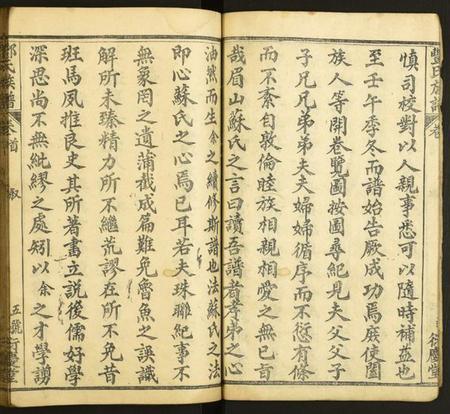 慎司校對以人親事悉可以隨時補益也
至壬午季冬而譜始告厥成功焉庶使闔
族人等開卷覽圖按圖尋紀見夫父父子
子兄兄弟弟夫夫婦婦循序而不愆有條
而不紊自敦倫睦族相親相愛之無已
哉眉山蘇氏之言曰讀吾譜者孝弟之心
油然而生余之續修斯譜也法蘇氏之法
即心蘇氏之心焉已耳若夫珠聯紀事不
無象罔之遺蒲截成篇難免魯魚之誤識
解所未臻精力所不繼荒謬在所不免昔
班馬夙推良史其所著書立說後儒好學
深思尚不無紕謬之處矧以余之才學謭
氏族譜
卷首
叙